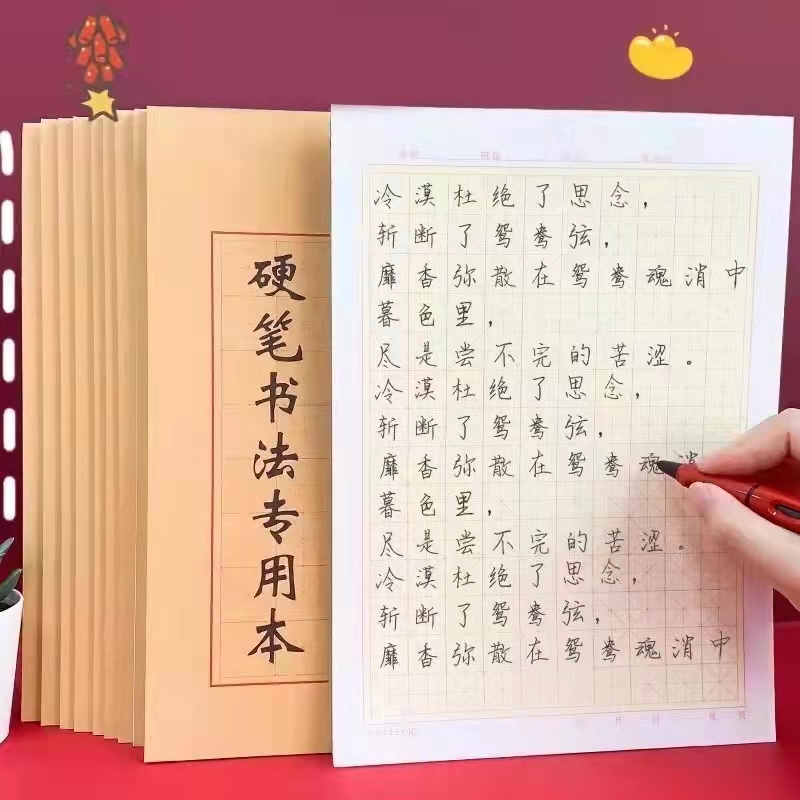 硬笔书法专用本
冷漠杜绝了思念，
斩断了鸳鸯弦，
靡香弥散在鸳鸯魂消中
暮色里，
尽是尝不完的苦涩。
冷漠杜绝了思念，
斩断了鸳鸯弦，
靡香弥散在鸳鸯魂消
暮色里，
尽是尝不完的苦涩。
冷漠杜绝了思念，
斩断了鸳鸯弦，
靡香弥散在鸳鸯魂消中